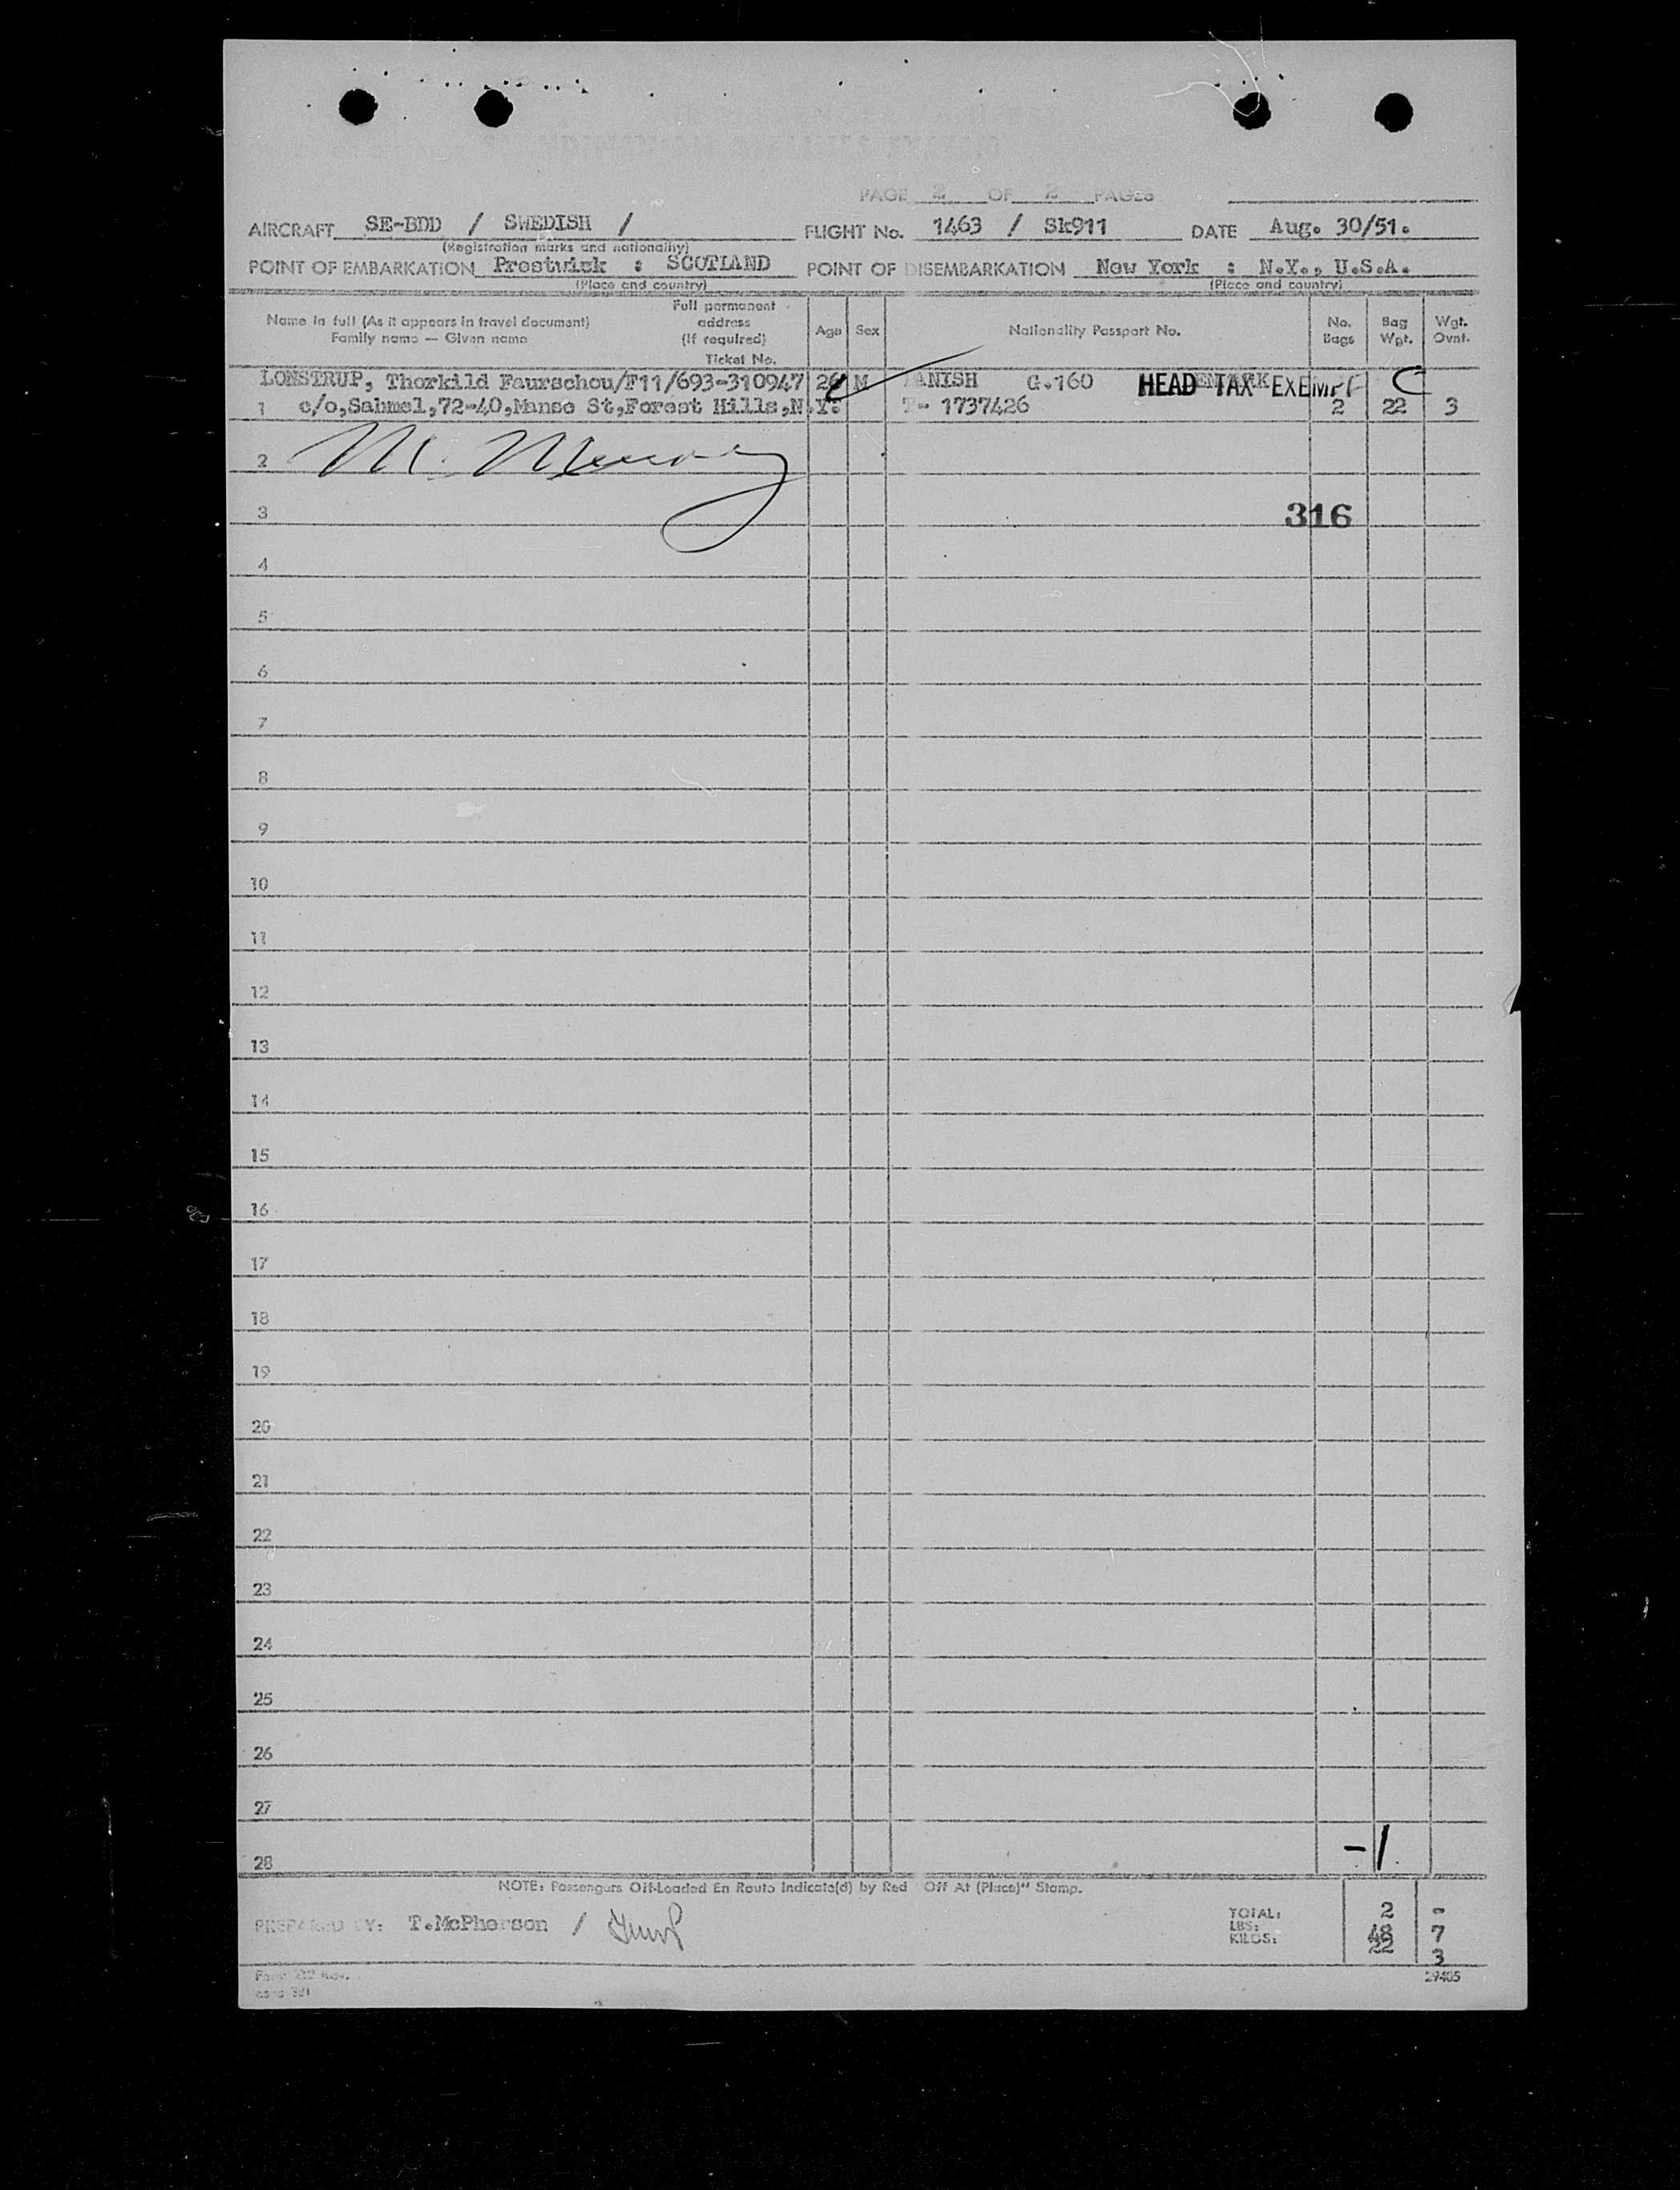 PAGE 2 OF 2 PAGES
AIRCRAFT SE-BDD / SWEDISH / FLIGHT No. 1463 / Sk911 DATE Aug. 30/51.
(Registration marks and nationality)
POINT OF EMBARKATION Prestwick : SCOTLAND POINT OF DISEMBARKATION New York : N.Y., U.S.A.
(Place and country) (Place and country)
Name in full (As it appears in travel document) Family name — Given name Full permanent address (If required) Ticket No. Age Sex Nationality Passport No. No. Bags Bag Wgt. Wgt. Ovnt.
LONSTRUP, Thorkild Faurschou/F11/693-310947 26 M DANISH G.160 DENMARK HEAD TAX EXEMPT C
1 c/o,Sabmel,72-40,Manse St,Forest Hills,N.Y. T- 1737426 2 22 3
2 M.
3 316
4
5
6
7
8
9
10
11
12
13
14
15
16
17
18
19
20
21
22
23
24
25
26
27
28 -1
NOTE: Passengers Off-Loaded En Route Indicate(d) by Red Off At (Place)" Stamp.
PREPARED BY: T.McPherson / TOTAL: 2 -
LBS: 48 7
KILOS: 22 3
Form 212 Rev. 29405